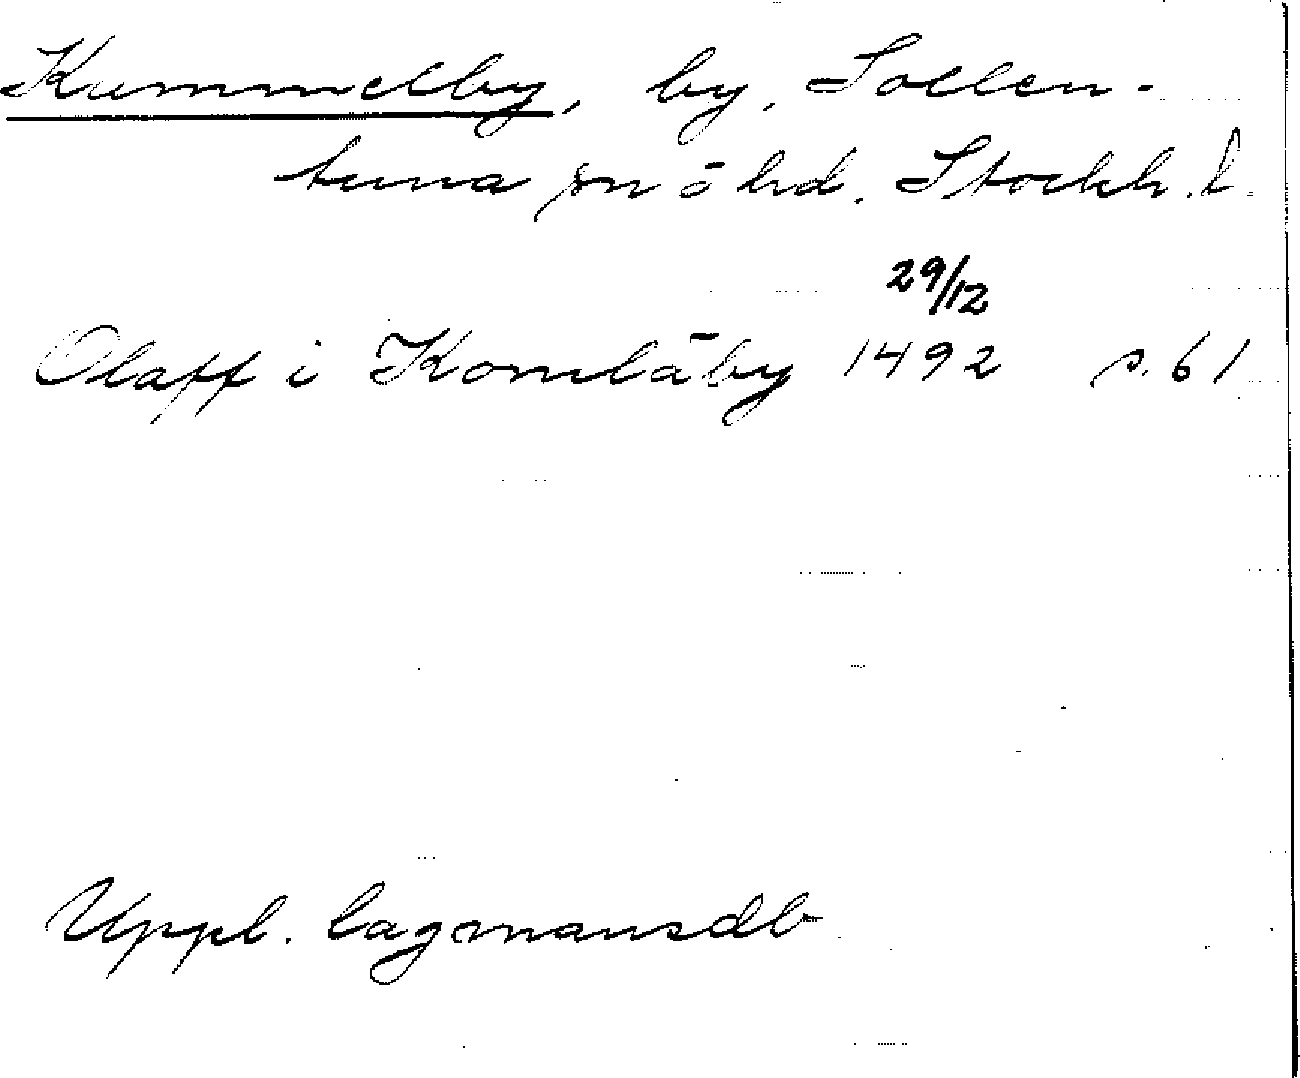 Kummelby, by, Sollen-
tuna sn ō hd. Stockh. l.
29/12
Olaff i Komlāby 1492 s. 61
Uppl. lagmansdb